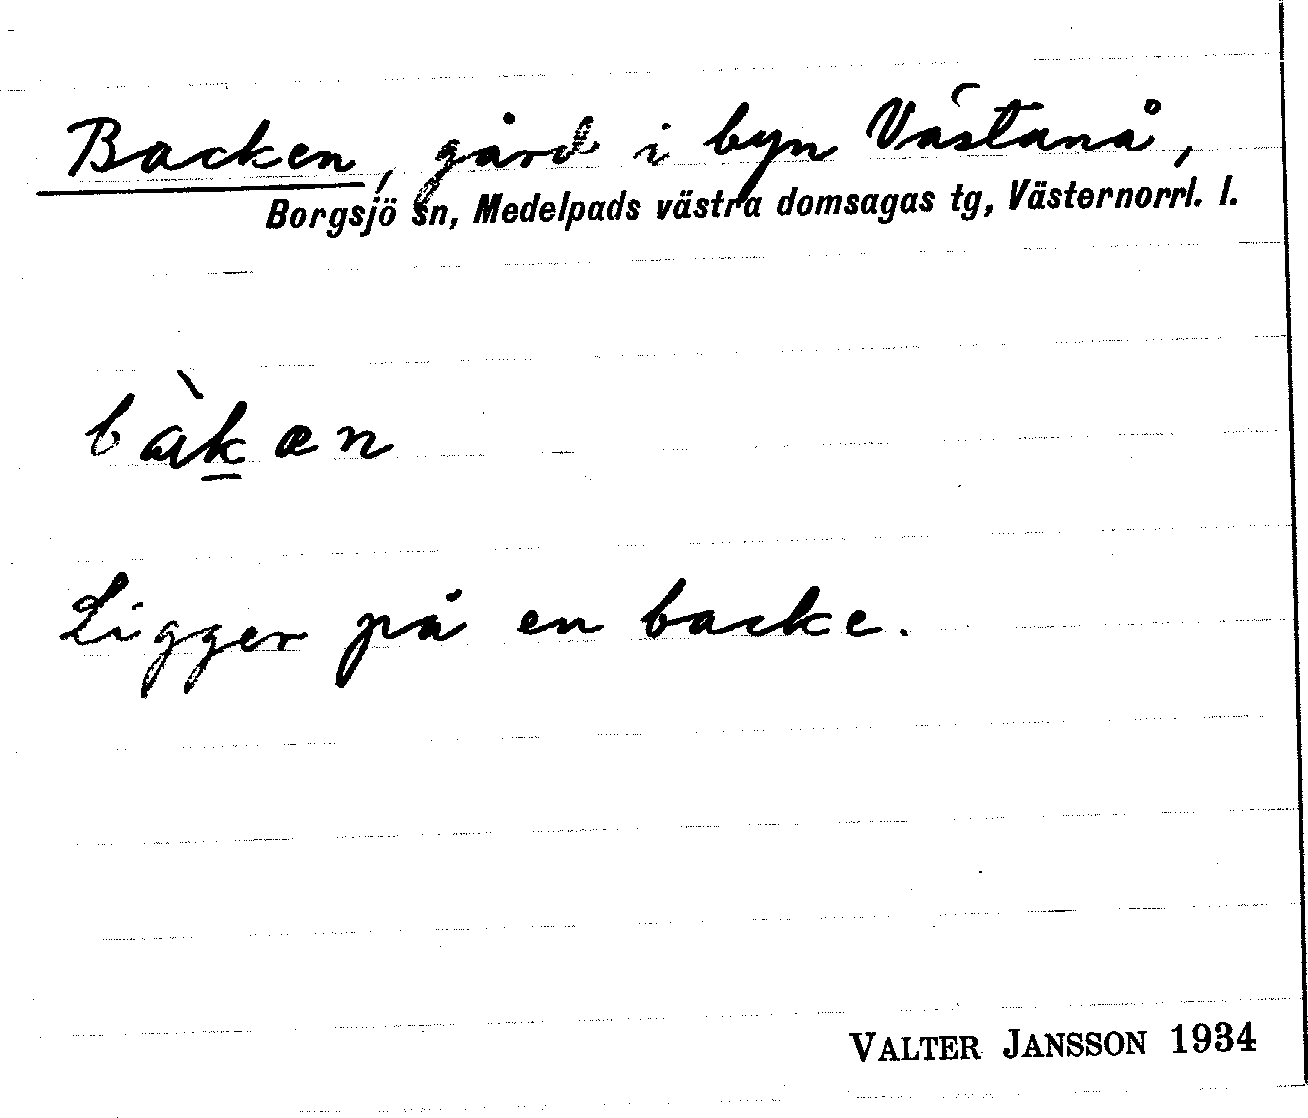 Backen, gård i byn Västanå,
Borgsjö sn, Medelpads västra domsagas tg, Västernorrl. l.
bàk̲æn
Ligger på en backe.
VALTER JANSSON 1934